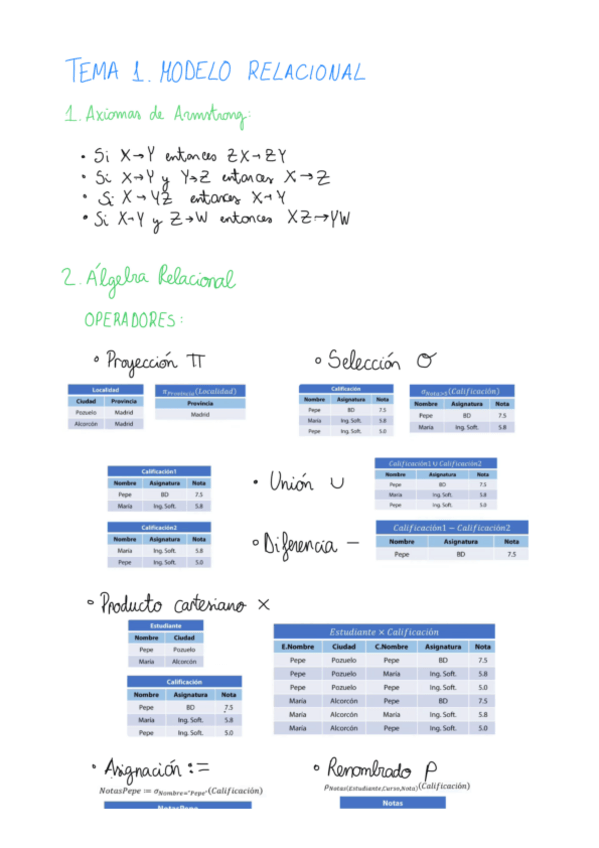 TEMA 1. MODELO RELACIONAL
1. Axiomas de Armstrong:
• Si X→Y entonces ZX→ZY
• Si X→Y y Y→Z entonces X→Z
• Si X→YZ entonces X→Y
• Si X→Y y Z→W entonces XZ→YW
2. Álgebra Relacional
OPERADORES:
◦ Proyección π
◦ Selección σ
Localidad
Ciudad Provincia
Pozuelo Madrid
Alcorcón Madrid
π Provincia (Localidad)
Provincia
Madrid
Calificación
Nombre Asignatura Nota
Pepe BD 7.5
María Ing. Soft. 5.8
Pepe Ing. Soft. 5.0
σ Nota>5 (Calificación)
Nombre Asignatura Nota
Pepe BD 7.5
María Ing. Soft. 5.8
Calificación1
Nombre Asignatura Nota
Pepe BD 7.5
María Ing. Soft. 5.8
Calificación2
Nombre Asignatura Nota
María Ing. Soft. 5.8
Pepe Ing. Soft. 5.0
• Unión ∪
Calificación1 ∪ Calificación2
Nombre Asignatura Nota
Pepe BD 7.5
María Ing. Soft. 5.8
Pepe Ing. Soft. 5.0
◦ Diferencia −
Calificación1 − Calificación2
Nombre Asignatura Nota
Pepe BD 7.5
◦ Producto cartesiano ×
Estudiante
Nombre Ciudad
Pepe Pozuelo
María Alcorcón
Calificación
Nombre Asignatura Nota
Pepe BD 7.5
María Ing. Soft. 5.8
Pepe Ing. Soft. 5.0
Estudiante × Calificación
E.Nombre Ciudad C.Nombre Asignatura Nota
Pepe Pozuelo Pepe BD 7.5
Pepe Pozuelo María Ing. Soft. 5.8
Pepe Pozuelo Pepe Ing. Soft. 5.0
María Alcorcón Pepe BD 7.5
María Alcorcón María Ing. Soft. 5.8
María Alcorcón María Ing. Soft. 5.0
• Asignación :=
NotasPepe ≔ σ Nombre="Pepe" (Calificación)
NotasPepe
◦ Renombrado ρ
ρ Notas(Estudiante,Curso,Nota) (Calificación)
Notas